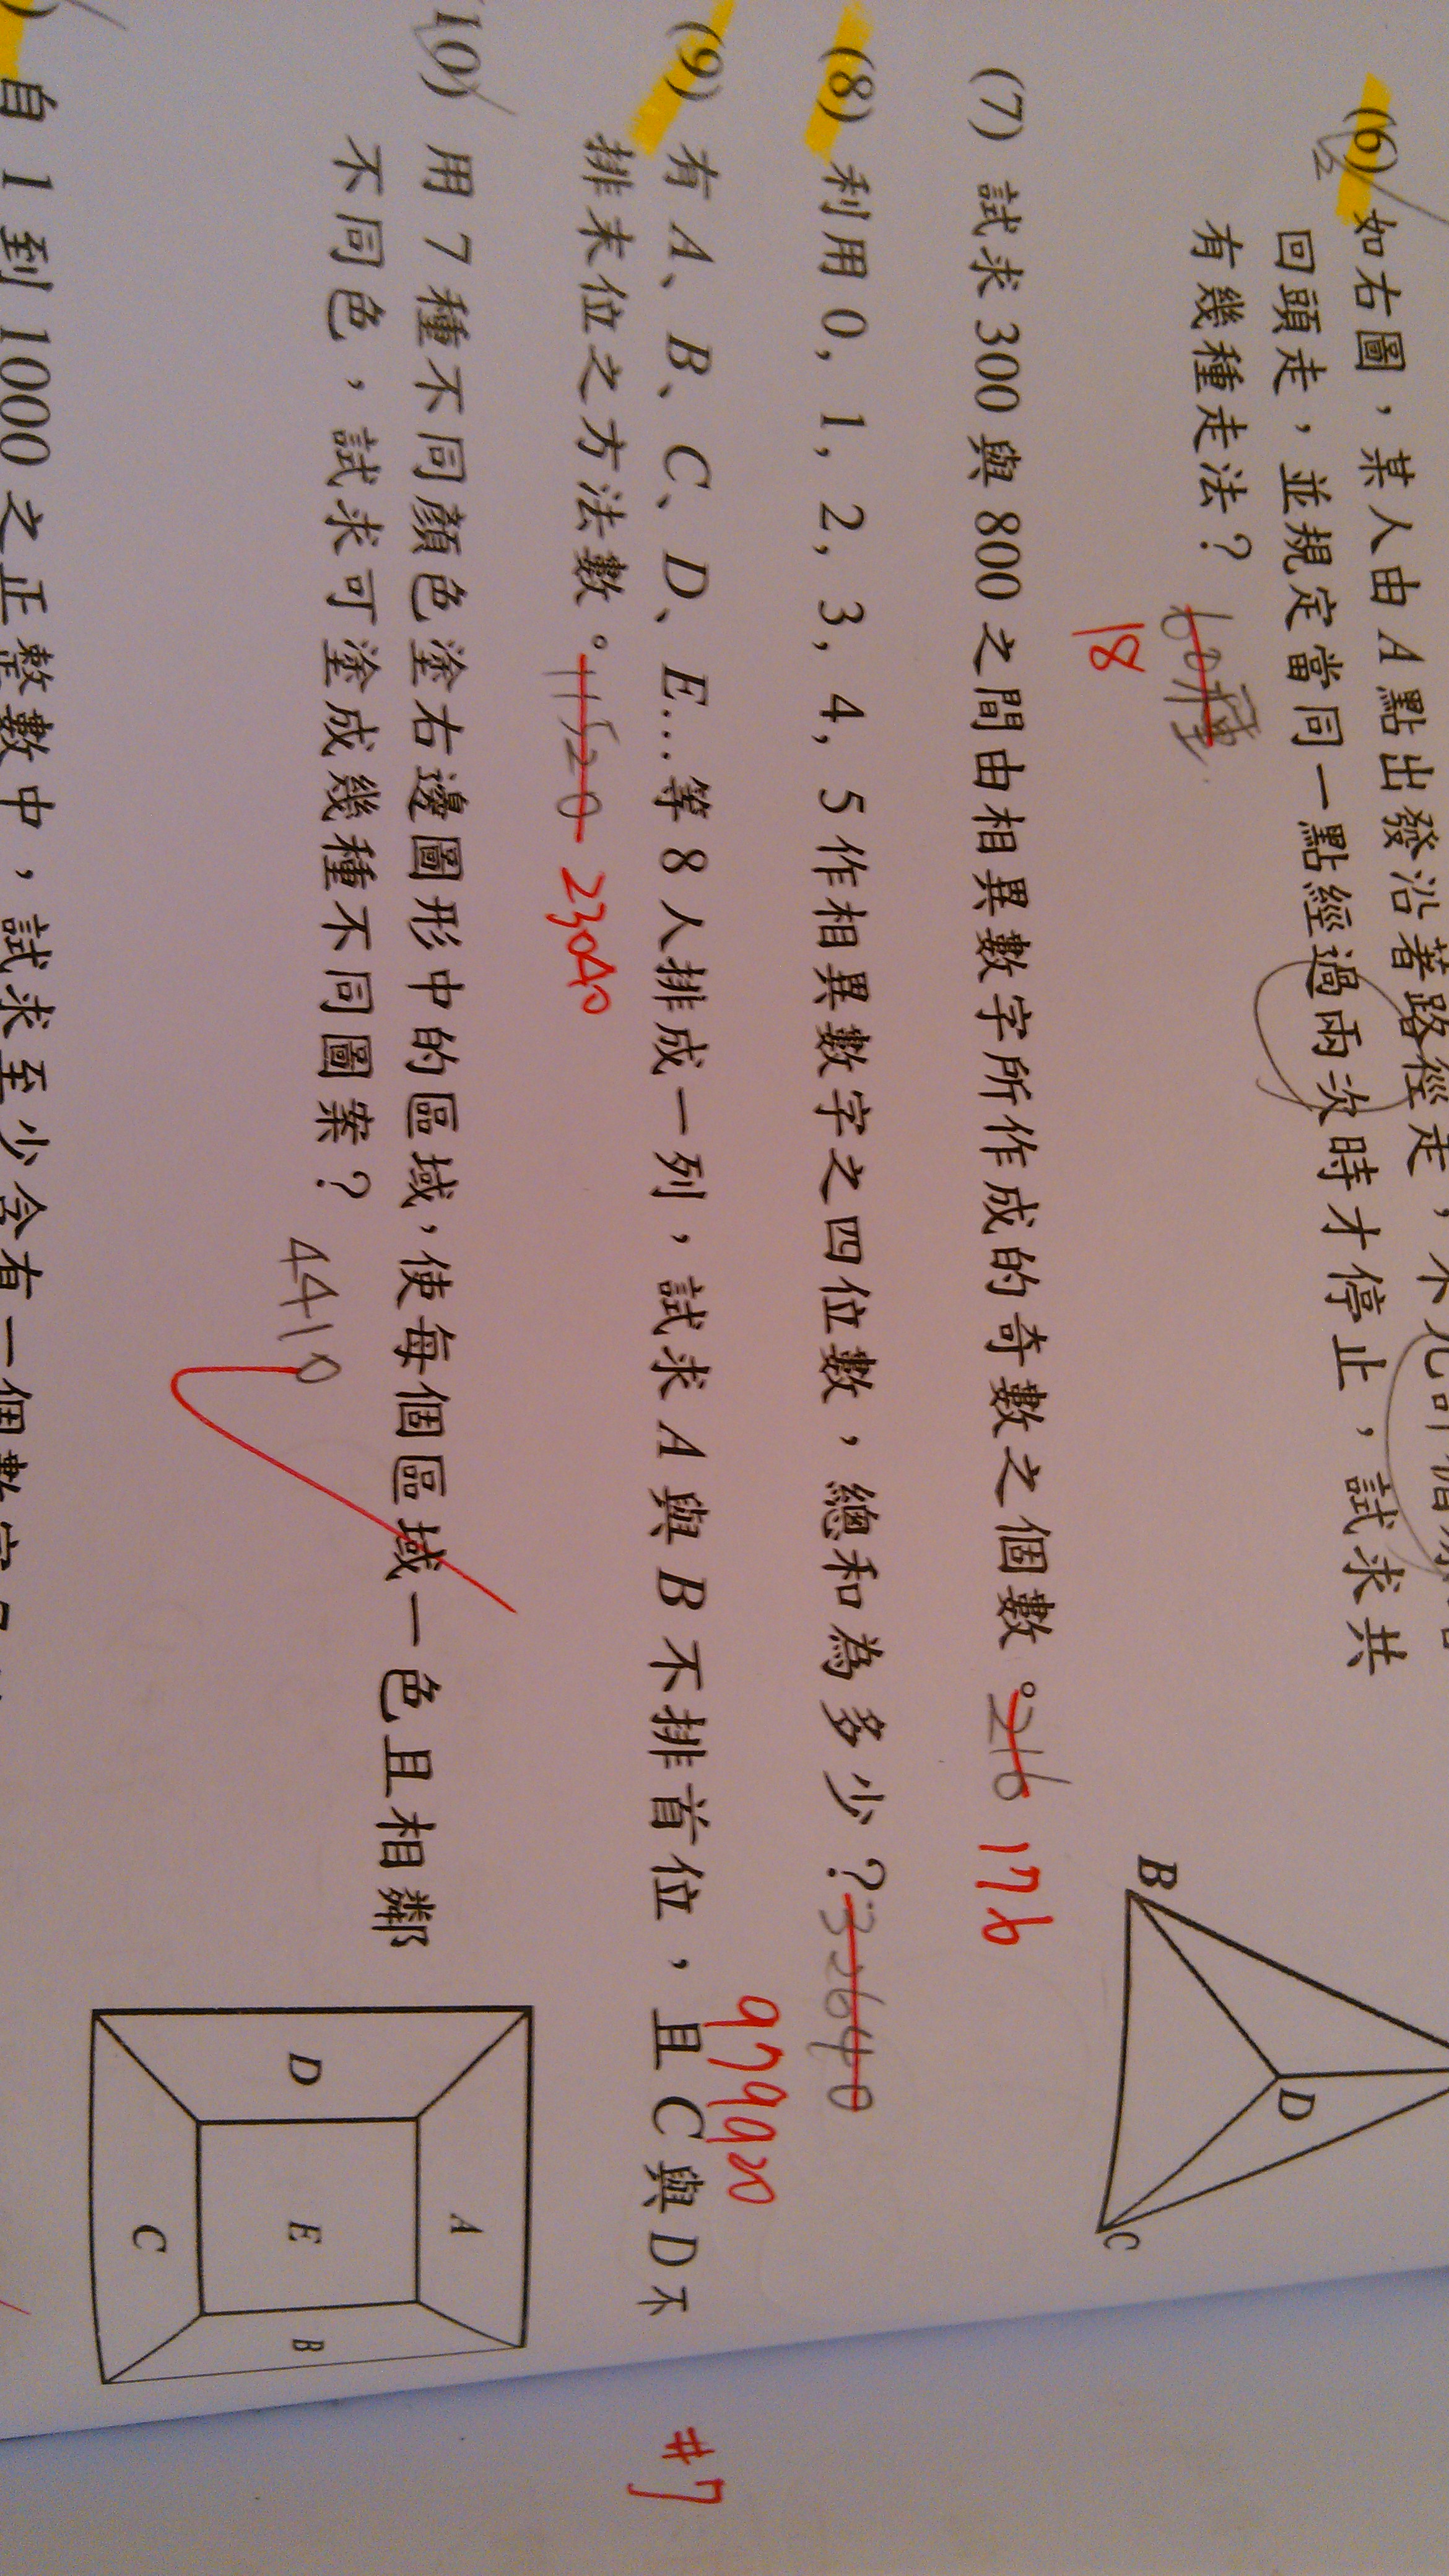 (6) 如右圖，某人由 A 點出發沿著路徑走，不
回頭走，並規定當同一點經過兩次時才停止，試求共
有幾種走法？ 60種
18
B
D
C
(7) 試求 300 與 800 之間由相異數字所作成的奇數之個數。216 176
(8) 利用 0, 1, 2, 3, 4, 5 作相異數字之四位數，總和為多少？ 32640
979920
(9) 有 A、B、C、D、E…等 8 人排成一列，試求 A 與 B 不排首位，且 C 與 D 不
排末位之方法數。11520 23040
#7
(10) 用 7 種不同顏色塗右邊圖形中的區域，使每個區域一色且相鄰
不同色，試求可塗成幾種不同圖案？ 4410
A
D
E
B
C
自 1 到 1000 之正整數中，試求至少含有一個數字